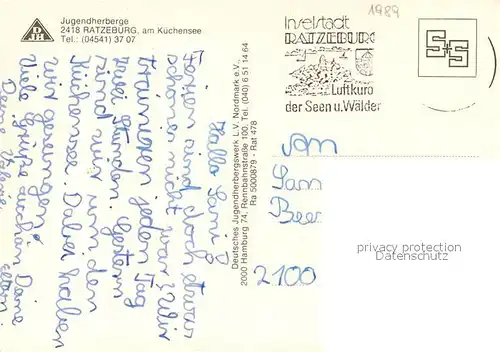 Jugendherberge
2418 RATZEBURG, am Küchensee
Tel.: (04541) 37 07
DJH
Hallo Sam!
Ferien sind doch etwas
schönes nicht war? Wir
trainigen jeden Tag
zwei Stunden. Gestern
sind wir um den
Küchensee. Dabei haben
wir gesungen.
Viele Grüße auch an Deine
Eltern.
Deine
Deutsches Jugendherbergswerk L.V. Nordmark e.V.,
2000 Hamburg 74, Rennbahnstraße 100, Tel. (040) 6 51 14 64
Ra 5000879 - Rat 478
1989
Inselstadt
RATZEBURG
Luftkuro
der Seen u. Wälder
S+S
An
Sam
Beer
2100
privacy protection
akpool.de